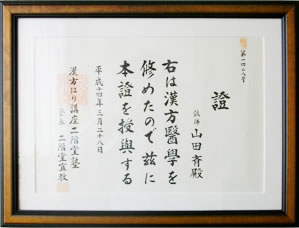 第一四〇八号
證
鍼師 山田斉殿
右は漢方醫學を
修めたので茲に
本證を授與する
平成十四年三月二十八日
漢方はり講座 二階堂塾
塾主 二階堂宜教